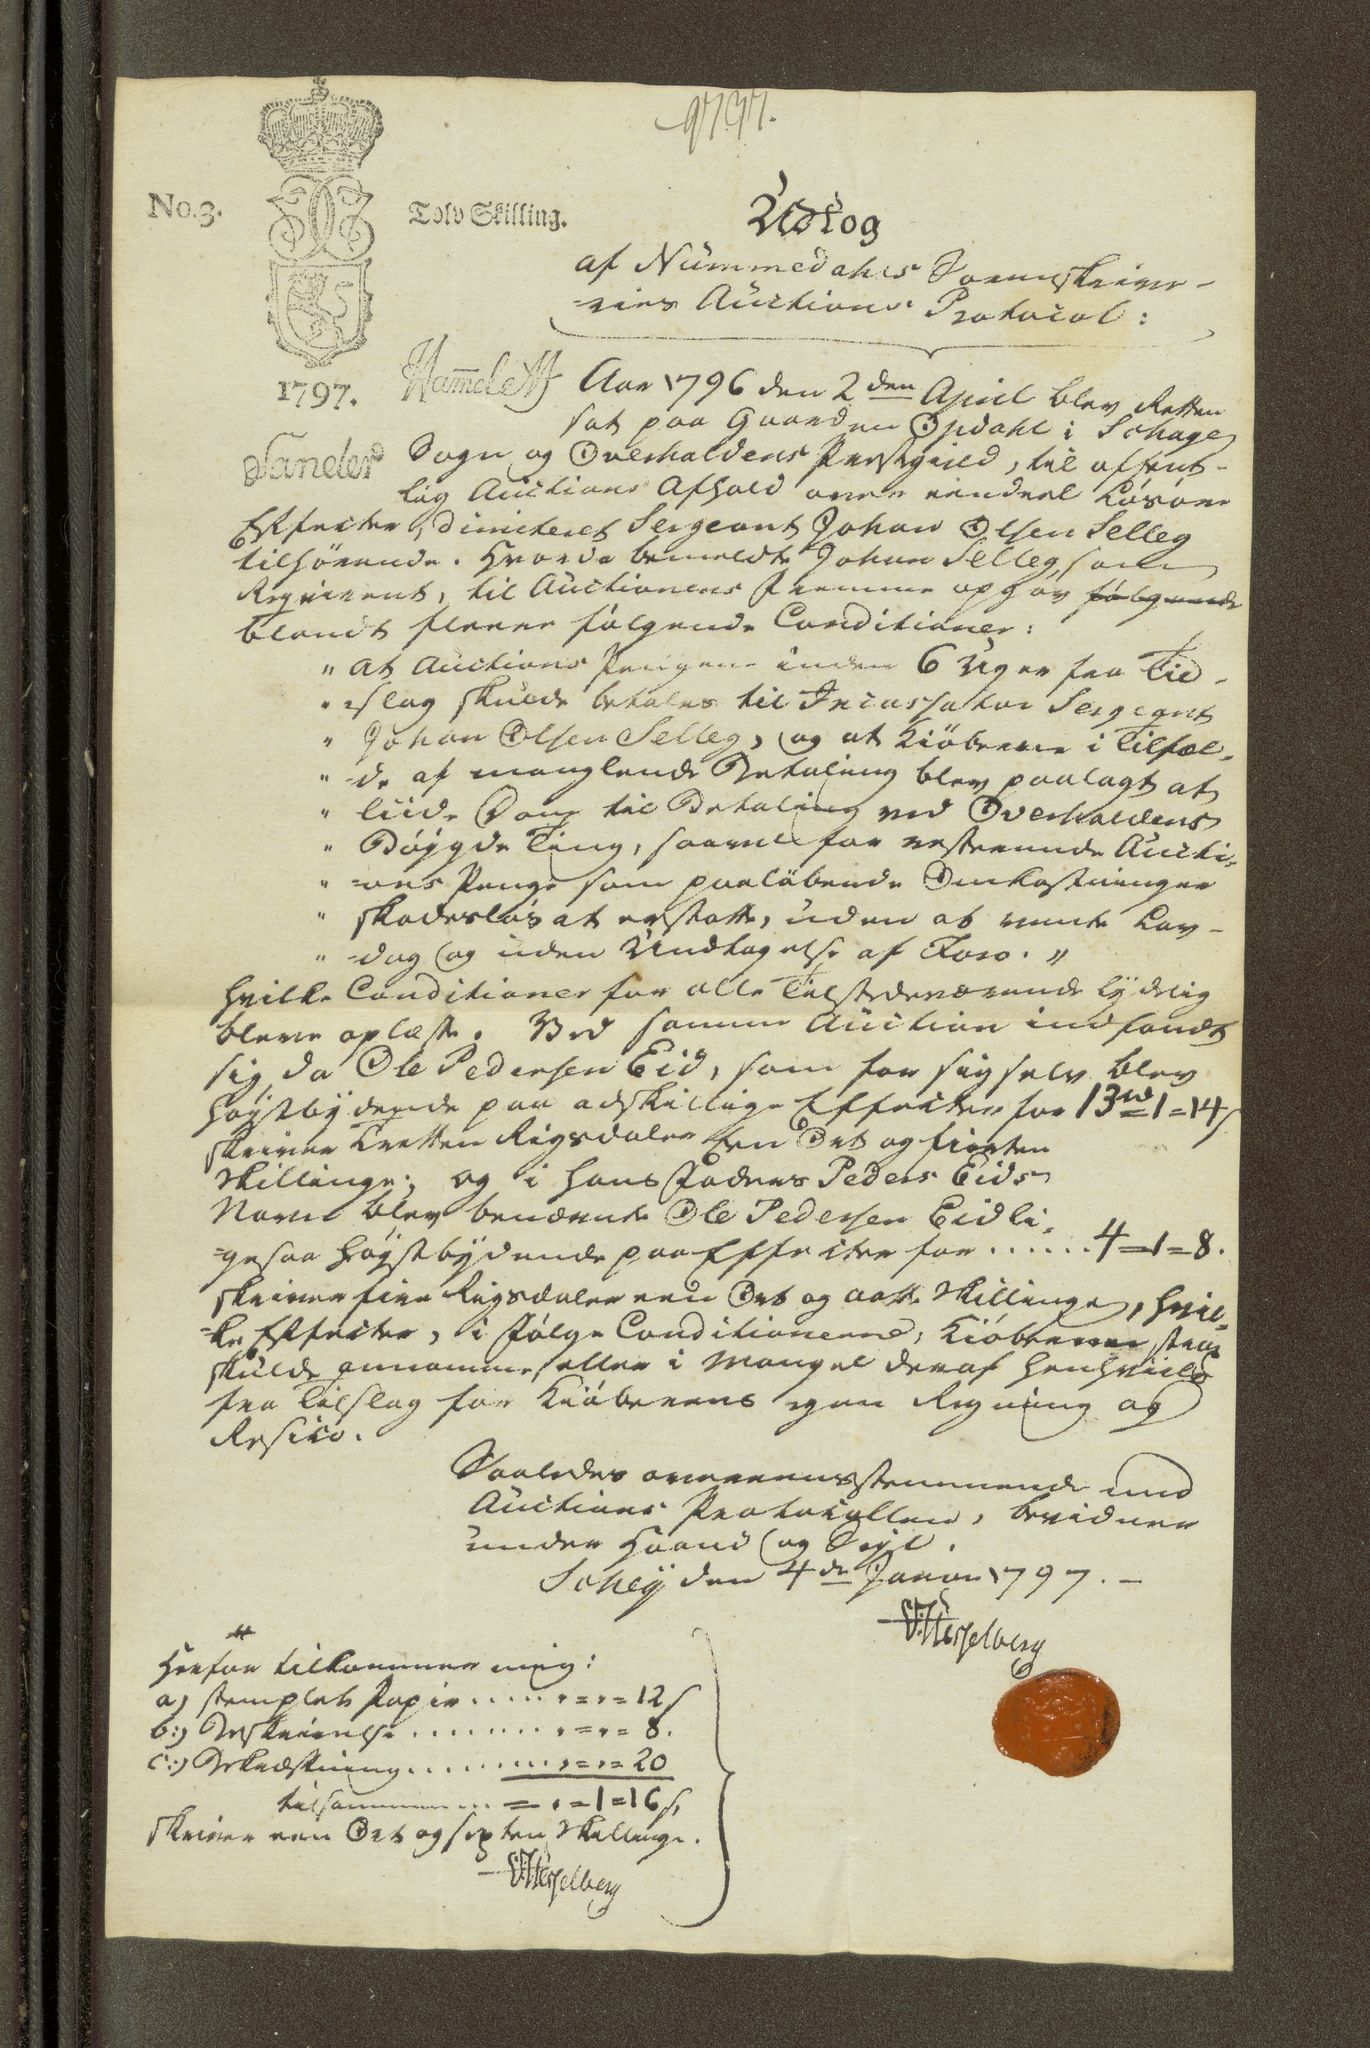 1797.
No. 3.
Tolv Skilling.
1797.
Udtog
af Nummedahls Sorenskrive-
-ries Auctions Protocol:
Aar 1796 den 2den April blev Retten
sat paa Gaarden Opdahl i Schage
Sogn og Overhaldens Præstegield, til offent-
lig Auctions Afhold over eendeel Løsøre
Effecter, dimitteret Sergeant Johan Olsen Selleg
tilhørende. Hvorda bemeldte Johan Selleg, som
Reqvirent, til Auctionens Fremme ophøv følgende
blandt fleere følgende Conditioner:
" at Auctions Pengene inden 6 Uger fra Til-
" -slag skulde betales til Incassator Sergeant
" Johan Olsen Selleg, og at Kiøberne i Tilfæl-
" -de af manglende Betaling blev paalagt at
" liide Dom til Betaling ved Overhaldens
" Bøygde Ting, saavel for resterende Aucti-
" -ons Penge som paaløbende Omkostninger
" skadesløs at erstatte, uden at nyde Lav-
" -dag og uden Undtagelse af Foro. "
hvilke Conditioner for alle Tilstedeværende lydelig
bleve oplæste. Ved samme Auction indfandt
sig da Ole Pedersen Eid, som for sig selv blev
høystbydende paa adskillige Effecter for 13rd=1=14s
skriver tretten Rigsdaler Een Ort og fiorten
skillinge; og i hans Faders Peders Eids
Navn blev benævnte Ole Pedersen Eid li-
-gesaa høystbydende paa Effecter for ...... 4=1=8.
skriver fire Rigsdaler een Ort og aatte skillinge, hvil-
-ke Effecter, i følge Conditionerne, Kiøberne strax
skulde annamme, eller i Mangel deraf henhviile
fra Tilslag for Kiøberens egen Regning og
Resico.
Saaledes overeensstemmende med
Auctions Protocollen, bevidner
under Haand og Seyl.
Schey den 4de Januar 1797. -
Hesselberg
Herfor tilkommer mig:
a) stemplet Papir ..... " = " = 12 s
b:) Beskrivelse ........ " = " = 8.
c:) Bekræftning ........ " = " = 20
tilsammen ... = " = 1 = 16 s,
skriver een Ort og sexten skillinge.
Hesselberg